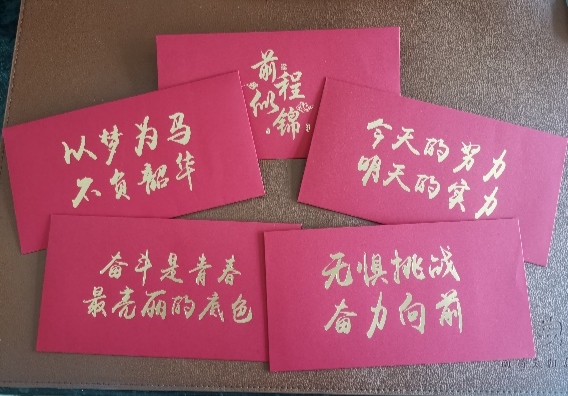 前程
似锦
以梦为马
不负韶华
今天的努力
明天的实力
奋斗是青春
最亮丽的底色
无惧挑战
奋力向前